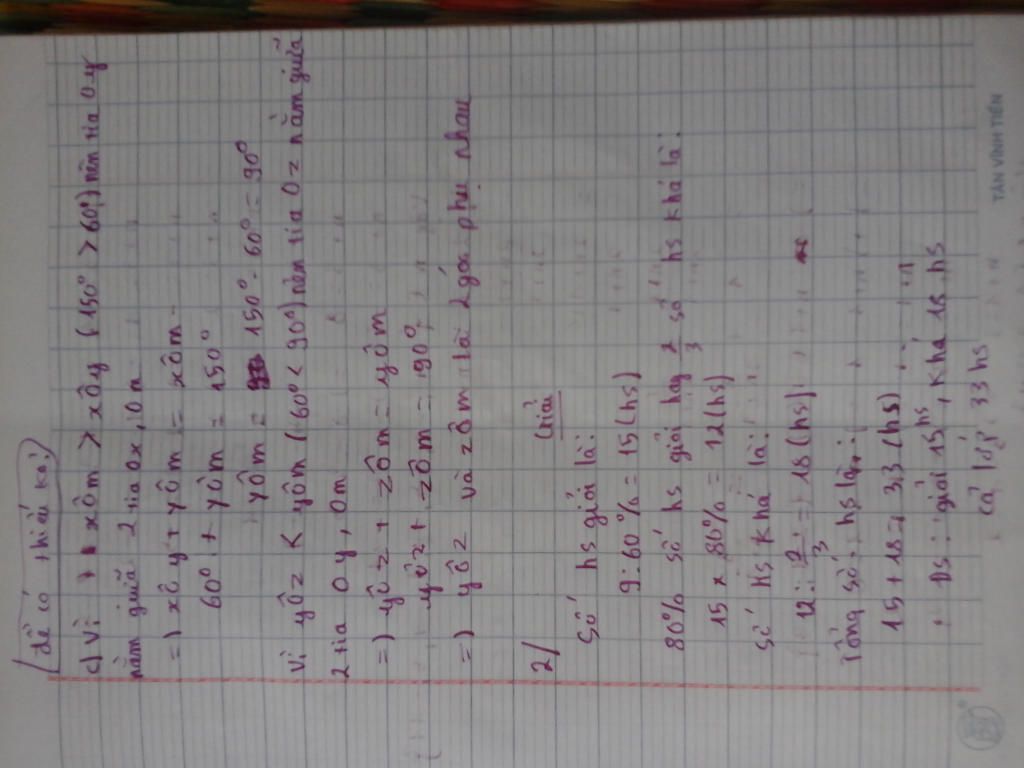 (đề có thiếu ko?)
c) Vì xôm > xôy (150° > 60°) nên tia Oy
nằm giữa 2 tia Ox, Om
=) xôy + yôm = xôm
60° + yôm = 150°
yôm = 150° - 60° = 90°
Vì yôz < yôm (60° < 90°) nên tia Oz nằm giữa
2 tia Oy, Om
=) yôz + zôm = yôm
yôz + zôm = 90°
=) yôz và zôm là 2 góc phụ nhau
2/ Giải
Số hs giỏi là:
9 : 60% = 15 (hs)
80% số hs giỏi hay 2/3 số hs khá là:
15 x 80% = 12 (hs)
Số Hs khá là:
12 : 2/3 = 18 (hs)
Tổng số hs là:
15 + 18 = 33 (hs)
Đs : giỏi 15 hs, khá 18 hs
cả lớp 33 hs
TÂN VĨNH TIẾN